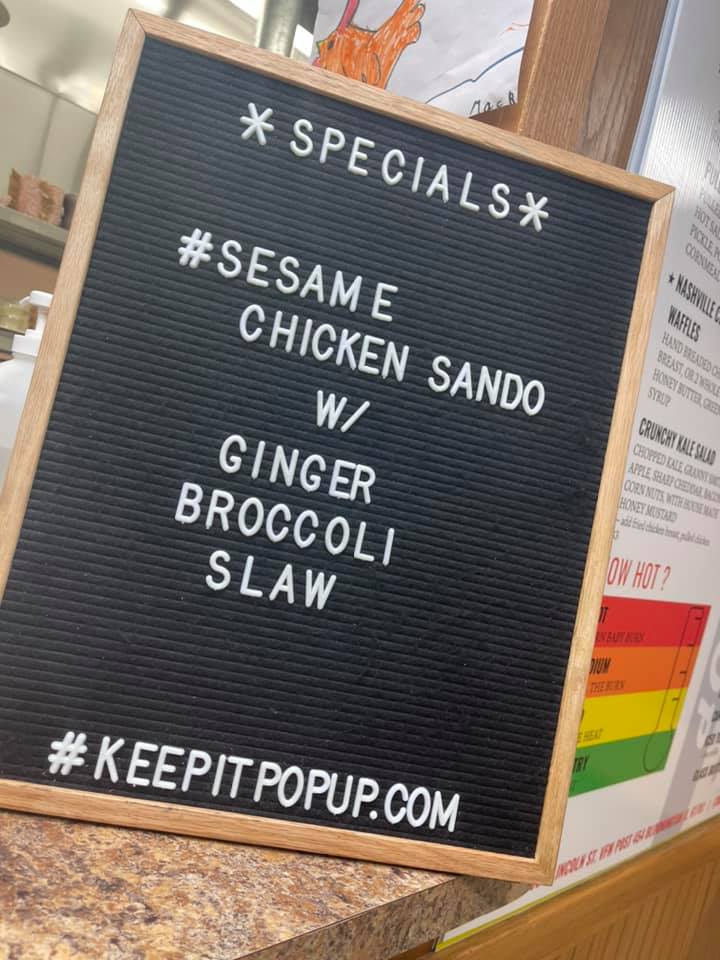 *SPECIALS*
#SESAME
CHICKEN SANDO
W/
GINGER
BROCCOLI
SLAW
#KEEPITPOPUP.COM
HOT SA
PICKLE, P
CORNME
* NASHVILLE
WAFFLES
HAND BREADED
BREAST, OR 2
HONEY BUTTER,
SYRUP
CRUNCHY KALE SALAD
CHOPPED KALE, GRANNY
APPLE, SHARP CHEDDAR,
CORN NUTS, WITH HOUSE MADE
HONEY MUSTARD
- add fried chicken breast, pulled chicken
OW HOT?
BABY BURN
DIUM
THE BURN
HEAT
TRY
LINCOLN ST. VFW POST 454